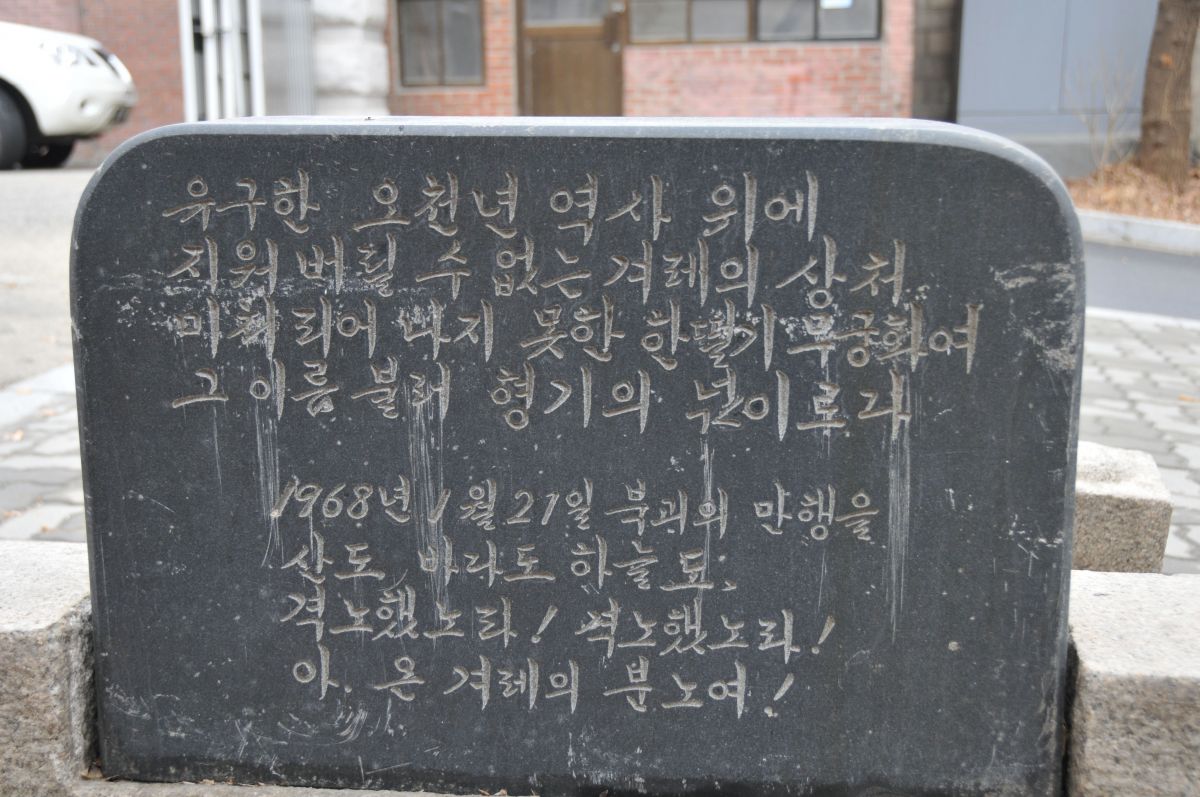 유구한 오천년 역사 위에
지워 버릴 수 없는 겨레의 상처
미처 피어 나지 못한 한떨기 무궁화여
그 이름 불러 형기의 넋이로라
1968년 1월 21일 북괴의 만행을
산도 바다도 하늘도
격노했노라! 격노했노라!
아. 온 겨레의 분노여!